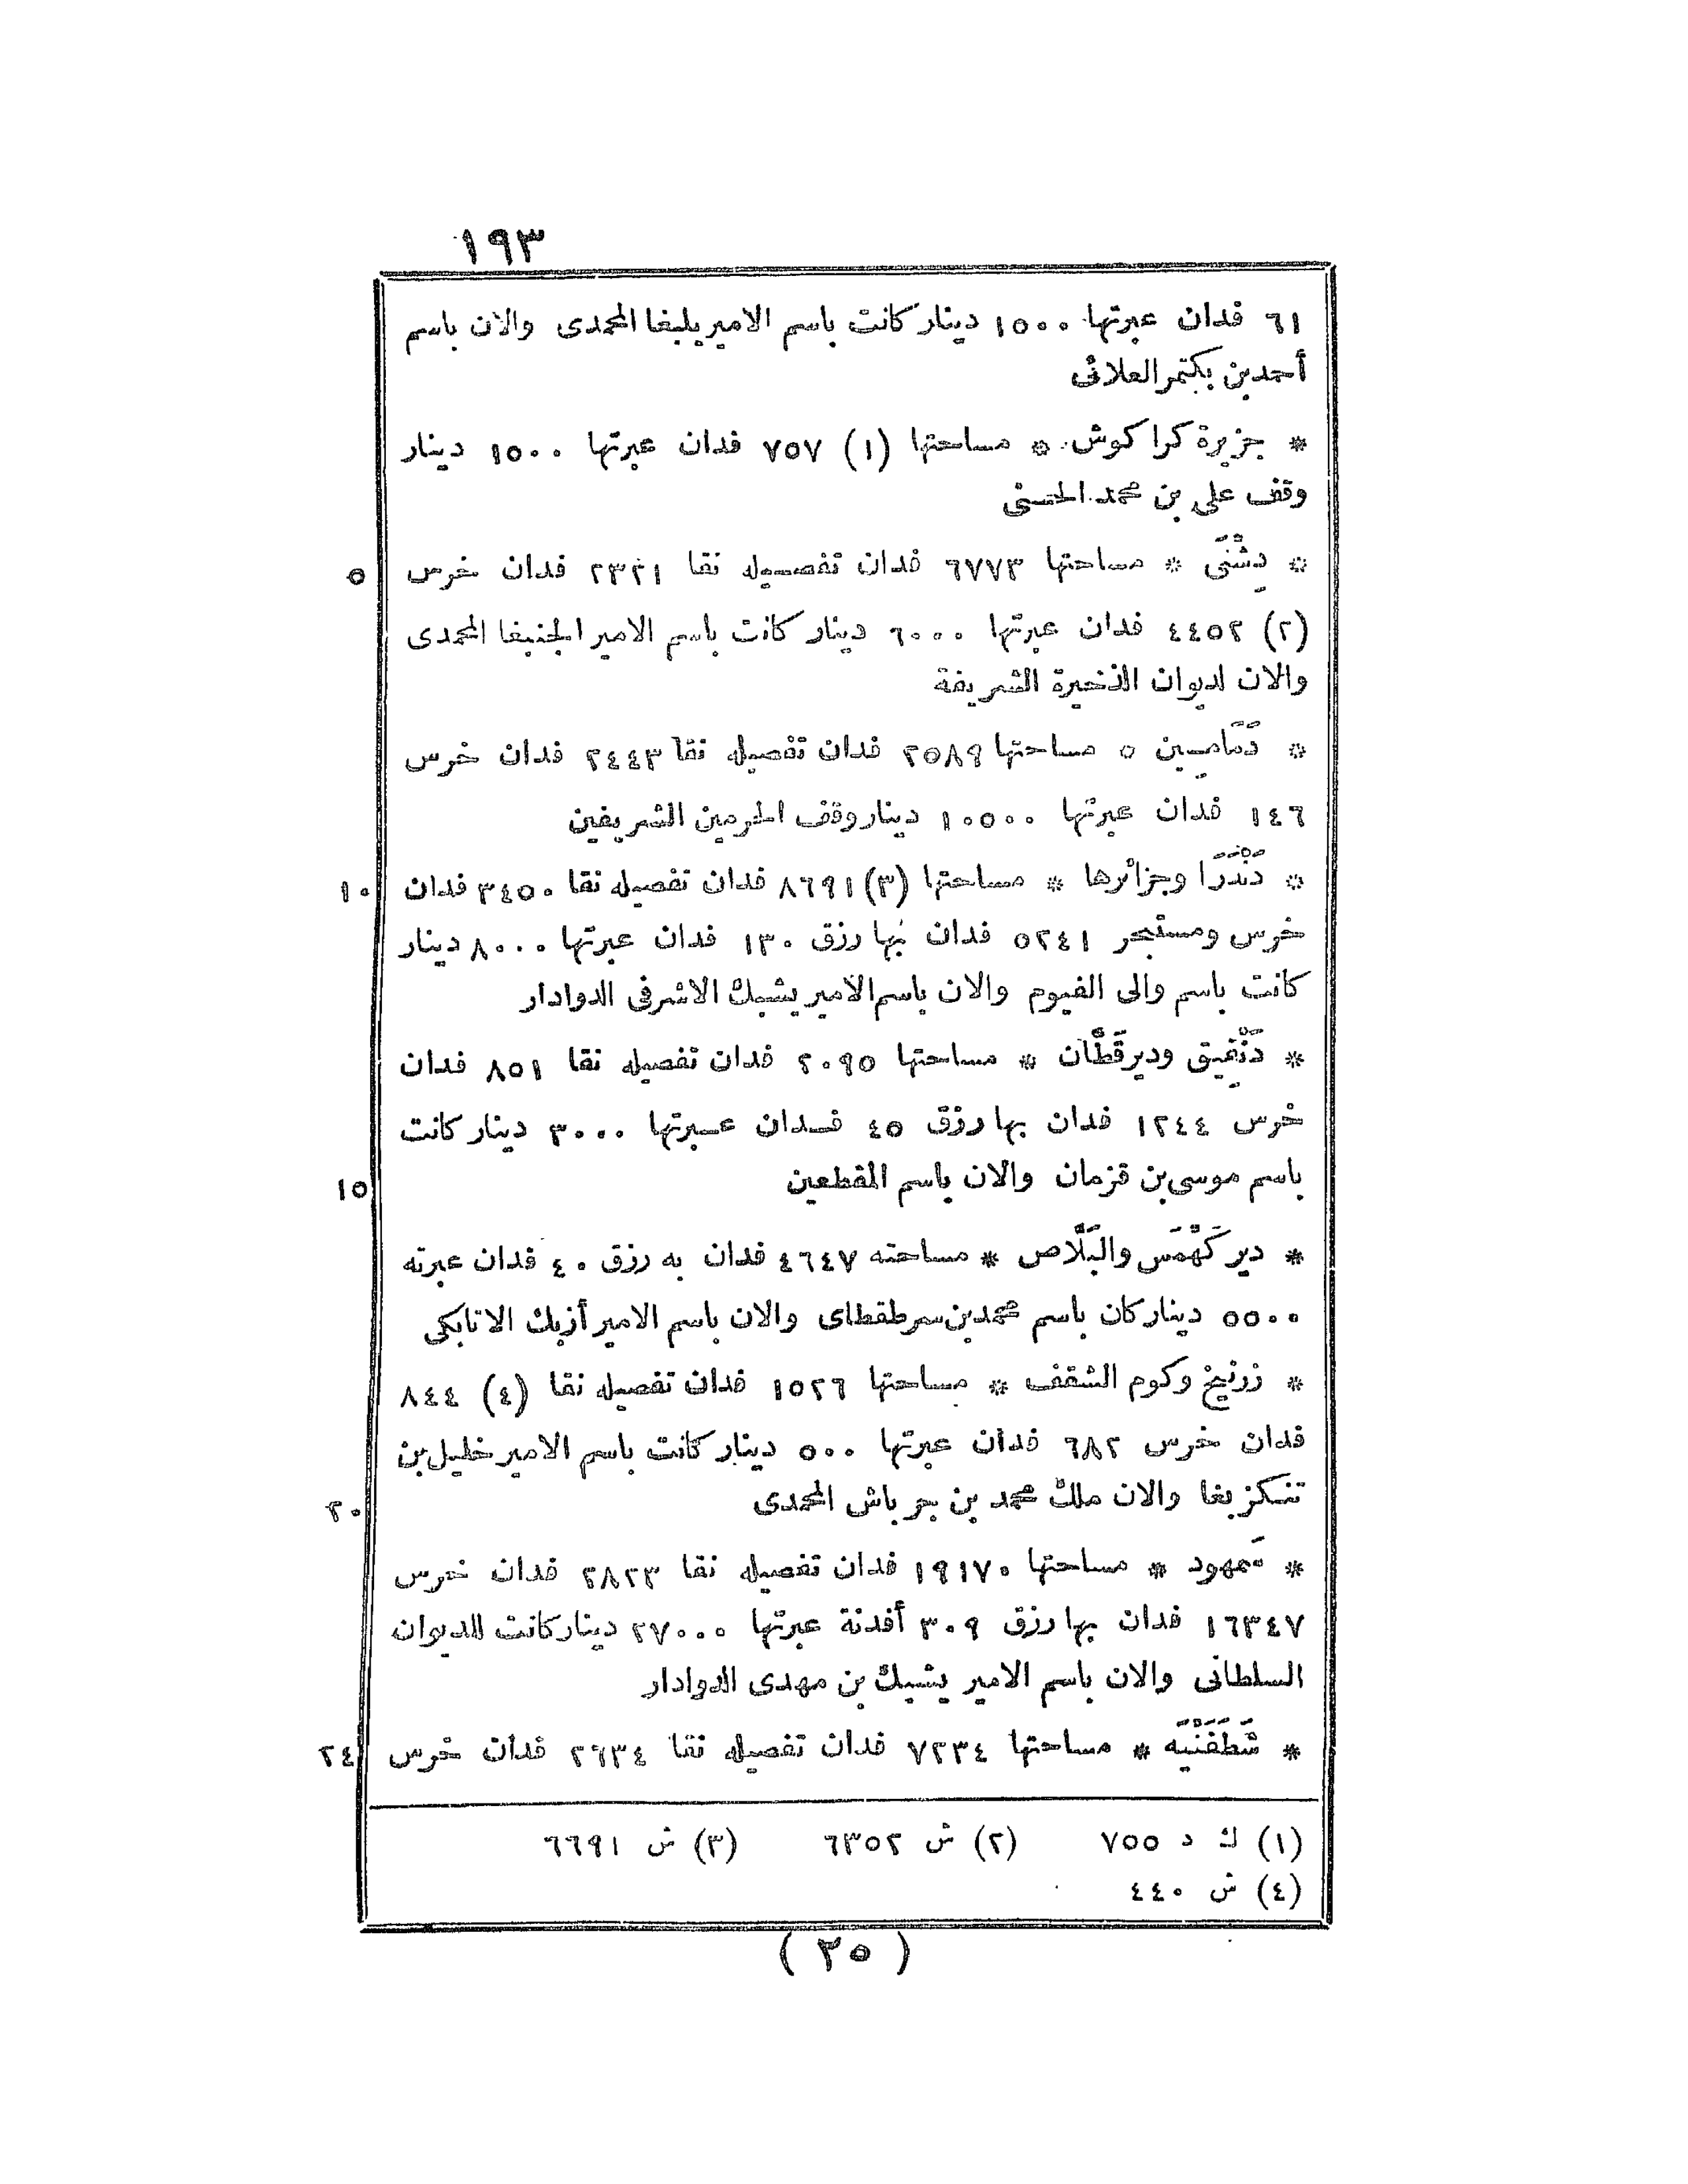 ١٩٣
٦١ فدان عبرتها ١٥٠٠ دينار كانت باسم الامير يلبغا المحمدى والان باسم
أحمد بن بكتمر العلائى
* جزيرة كراكوش * مساحتها (١) ٧٥٧ فدان عبرتها ١٥٠٠ دينار
وقف على بن محمد الحسنى
* دِشْنَى * مساحتها ٦٧٧٣ فدان تفصيله نقا ٢٣٢١ فدان خرس ٥
(٢) ٤٤٥٢ فدان عبرتها ٦٠٠٠ دينار كانت باسم الامير الجنبغا المحمدى
والان لديوان الذخيرة الشريفة
* دَمَامين * مساحتها ٢٥٨٩ فدان تفصيله نقا ٢٤٤٣ فدان خرس
١٤٦ فدان عبرتها ١٠٥٠٠ دينار وقف الحرمين الشريفين
* دَنْدَرَا وجزائرها * مساحتها (٣) ٨٦٩١ فدان تفصيله نقا ٣٤٥٠ فدان ١٠
خرس ومستبحر ٥٢٤١ فدان بها رزق ١٣٠ فدان عبرتها ٨٠٠٠ دينار
كانت باسم والى الفيوم والان باسم الامير يشبك الاشرفى الدوادار
* دَنْفِيق وديرقَطَّان * مساحتها ٢٠٩٥ فدان تفصيله نقا ٨٥١ فدان
خرس ١٢٤٤ فدان بها رزق ٤٥ فدان عبرتها ٣٠٠٠ دينار كانت
باسم موسى بن قزمان والان باسم المقطعين ١٥
* دير كَهْمَس والبَلَّاص * مساحته ٤٦٤٧ فدان به رزق ٤٠ فدان عبرته
٥٥٠٠ دينار كان باسم محمد بن سرطقطاى والان باسم الامير أزبك الاتابكى
* زرنيخ وكوم الشقف * مساحتها ١٥٢٦ فدان تفصيله نقا (٤) ٨٤٤
فدان خرس ٦٨٢ فدان عبرتها ٥٠٠ دينار كانت باسم الامير خليل بن
تنكز بغا والان ملك محمد بن جرباش المحمدى ٢٠
* سَمهود * مساحتها ١٩١٧٠ فدان تفصيله نقا ٢٨٢٣ فدان خرس
١٦٣٤٧ فدان بها رزق ٣٠٩ أفدنة عبرتها ٢٧٠٠٠ دينار كانت للديوان
السلطانى والان باسم الامير يشبك بن مهدى الدوادار
* شَطَفَنْيَه * مساحتها ٧٢٣٤ فدان تفصيله نقا ٢٦٣٤ فدان خرس ٢٤
(١) ك د ٧٥٥ (٢) ش ٦٣٥٢ (٣) ش ٦٦٩١
(٤) ش ٤٤٠
( ٢٥ )